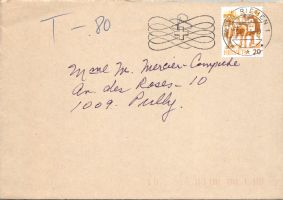 T -.80
RIEHEN 1
HELVETIA 20
Mme M. Mercier-Campiche
Av. des Roses - 10
1009 - Pully.